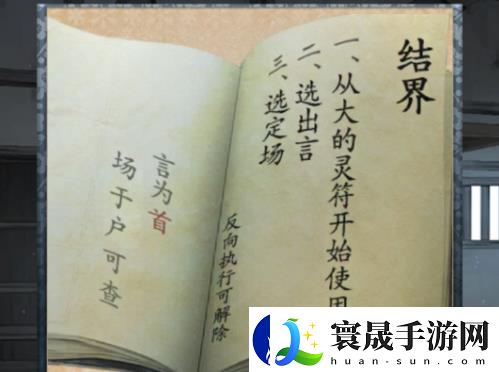 结界
一、从大的灵符开始使用
二、选出言
三、选定场
反向执行可解除
言为首
场于户可查
寰晟手游网
huan-sun.com